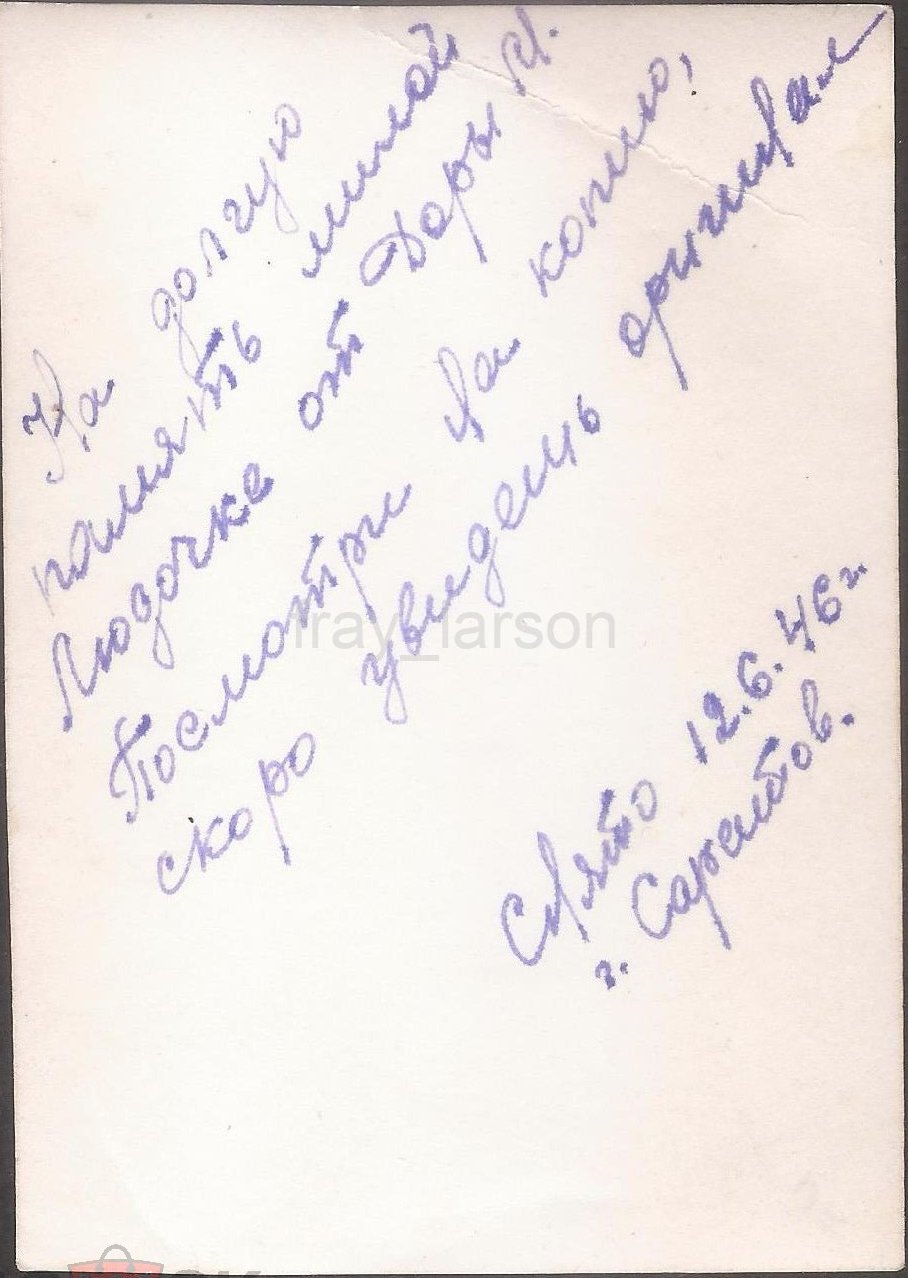 На долгую
память милой
Людочке от Доры И.
Посмотри на копию,
скоро увидешь оригинал
Снято 12.6.46 г.
г. Саратов.
fray_larson